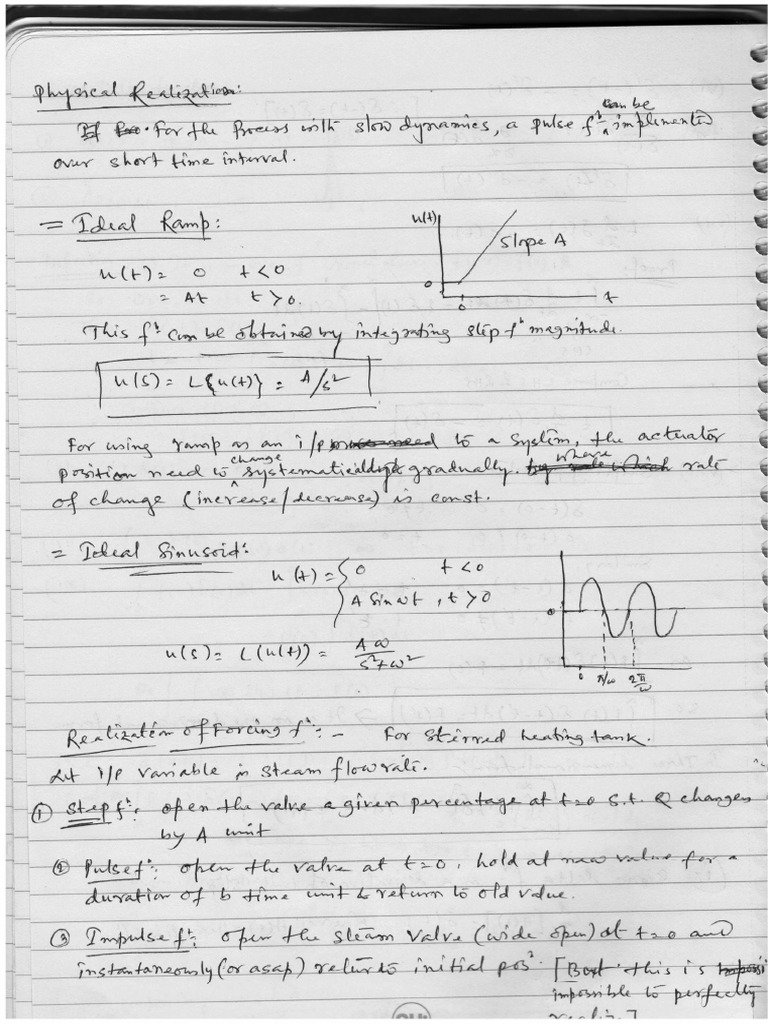 Physical Realization:
For the Process with slow dynamics, a pulse fⁿ can be implemented
over short time interval.
= Ideal Ramp:
u(t) = 0 t < 0
= At t > 0.
u(t)
Slope A
0
0
t
This fⁿ can be obtained by integrating step fⁿ magnitude.
u(s) = L{u(t)} = A/s²
For using ramp as an i/p to a system, the actuator
position need to change systematically gradually. where rate
of change (increase/decrease) is const.
= Ideal Sinusoid:
u(t) = { 0 t < 0
A Sin ωt, t > 0
0
0 π/ω 2π/ω
u(s) = L(u(t)) = Aω / s²+ω²
Realization of Forcing fⁿ: - For Stirred heating tank.
Let i/p variable is steam flowrate.
① Step fⁿ: open the valve a given percentage at t=0 s.t. Q changes
by A unit
② Pulse fⁿ: open the valve at t=0, hold at new value for a
duration of b time unit & return to old value.
③ Impulse fⁿ: open the steam valve (wide open) at t=0 and
instantaneously (or asap) return to initial posⁿ [But this is
impossible to perfectly
realize]